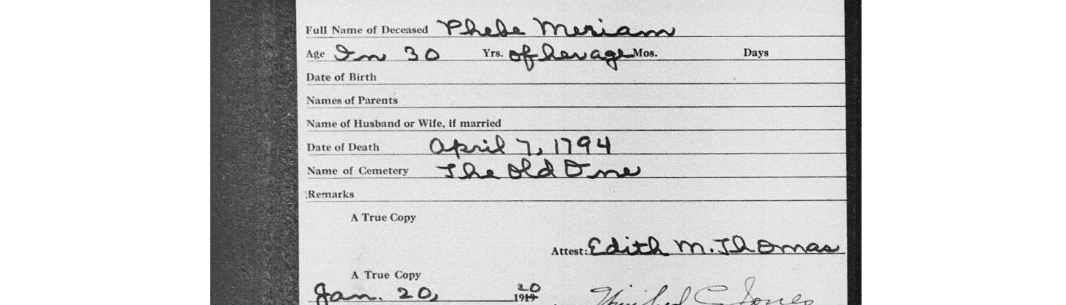 Full Name of Deceased Phebe Meriam
Age In 30 Yrs. of her age Mos. Days
Date of Birth
Names of Parents
Name of Husband or Wife, if married
Date of Death April 7, 1794
Name of Cemetery The Old One
Remarks
A True Copy
Attest: Edith M. Thomas
A True Copy
Jan. 20, 1919 20